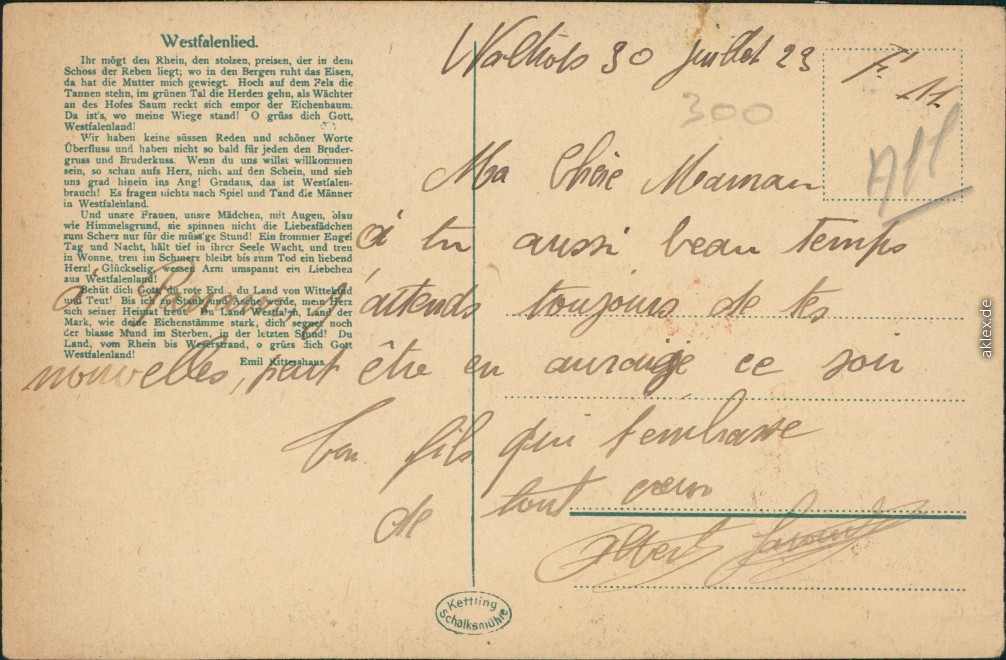 Westfalenlied.
Ihr mögt den Rhein, den stolzen, preisen, der in dem
Schoss der Reben liegt; wo in den Bergen ruht das Eisen,
da hat die Mutter mich gewiegt. Hoch auf dem Fels die
Tannen stehn, im grünen Tal die Herden gehn, als Wächter
an des Hofes Saum reckt sich empor der Eichenbaum.
Da ist's, wo meine Wiege stand! O grüss dich Gott,
Westfalenland!
Wir haben keine süssen Reden und schöner Worte
Überfluss und haben nicht so bald für jeden den Bruder-
gruss und Bruderkuss. Wenn du uns willst willkommen
sein, so schau aufs Herz, nicht auf den Schein, und sieh
uns grad hinein ins Aug! Gradaus, das ist Westfalen-
brauch! Es fragen nichts nach Spiel und Tand die Männer
in Westfalenland.
Und unsre Frauen, unsre Mädchen, mit Augen, blau
wie Himmelsgrund, sie spinnen nicht die Liebesfädchen
zum Scherz nur für die müss'ge Stund! Ein frommer Engel
Tag und Nacht, hält tief in ihrer Seele Wacht, und treu
in Wonne, treu im Schmerz bleibt bis zum Tod ein liebend
Herz! Glückselig, wessen Arm umspannt ein Liebchen
aus Westfalenland!
Behüt dich Gott, du rote Erd, du Land von Wittekind
und Teut! Bis ich zu Staub und Asche werde, mein Herz
sich seiner Heimat freut. Du Land Westfalen, Land der
Mark, wie deine Eichenstämme stark, dich segnet noch
der blasse Mund im Sterben, in der letzten Stund! Du
Land, vom Rhein bis Weserstrand, o grüss dich Gott
Westfalenland!
Emil Rittershaus.
30 juillet 23
F. M.
300
Ma Chère Maman
à tu aussi beau temps
à j'attends toujours de tes
nouvelles, peut être en aurai je ce soir
ton fils qui t'embrasse
de tout cœur
Albert
Kettling
Schalksmühle
aklex.de